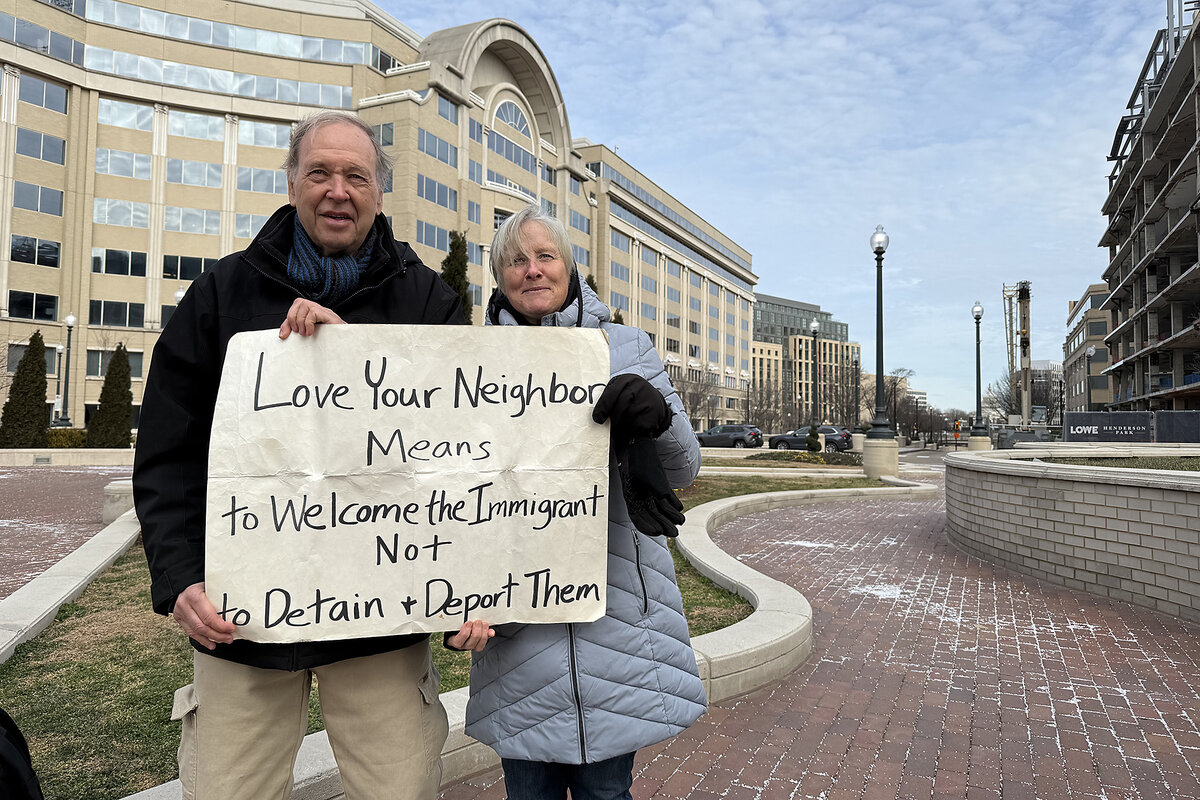 Love Your Neighbor
Means
to Welcome the Immigrant
Not
to Detain + Deport Them
LOWE HENDERSON PARK